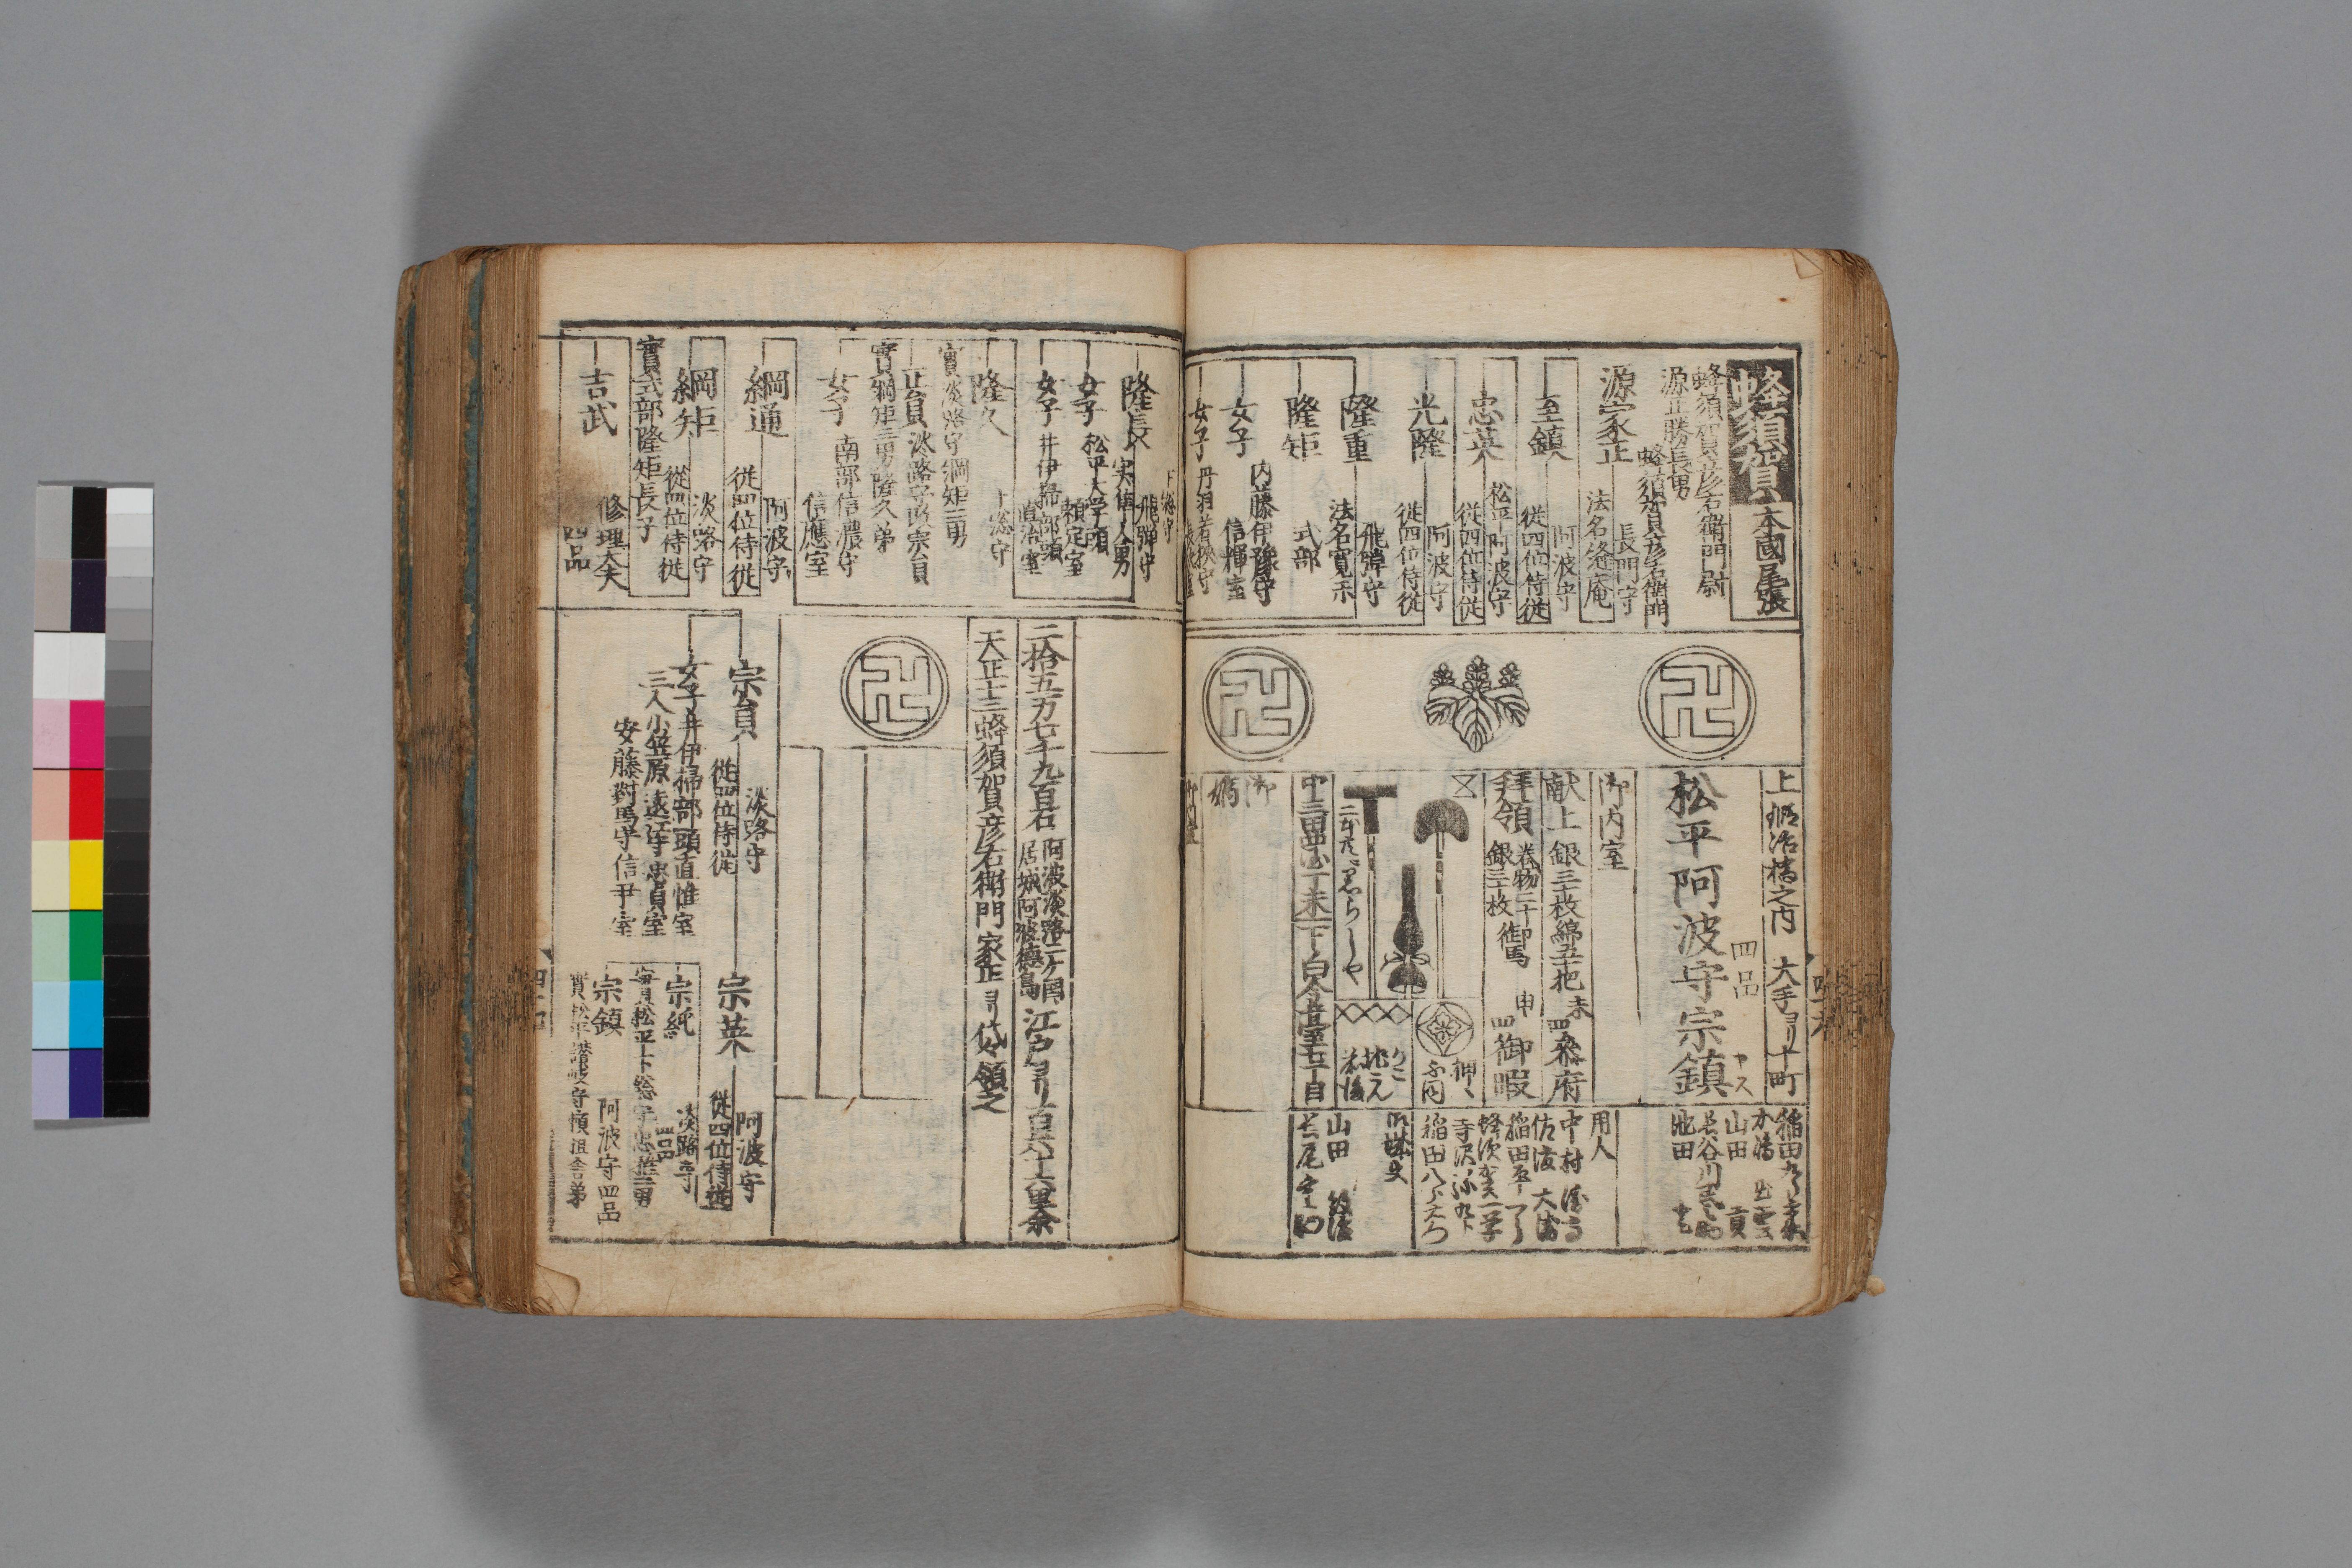 蜂須賀
本國尾張
蜂須賀彦右衛門尉
源正勝長男
蜂須賀彦右衛門
源家正
長門守
法名蓬庵
至鎮
阿波守
従四位侍従
忠英
松平阿波守
従四位侍従
光隆
阿波守
従四位侍従
隆重
飛騨守
隆矩
式部
女子
内藤伊豫守
信輝室
女子
丹羽若狭守
上
鍛冶橋之内
大手ヨリ十町
四品
松平阿波守宗鎮
御内室
献上
銀三十枚
綿五十把
未
四参府
拝領
巻物三十
銀三十枚
御馬
申
四御暇
用人
稲田
山田
長谷川
池田
中村
佐渡
稲田
蜂須賀一学
山田
長尾
隆長
飛騨守
女子
松平大学頭
頼定室
女子
井伊掃部頭
直治室
隆久
實淡路守綱矩二男
正員
淡路守改宗員
實綱矩三男隆久弟
女子
南部信濃守
信應室
綱通
阿波守
従四位侍従
綱矩
淡路守
従四位侍従
實式部隆矩長子
吉武
修理大夫
四品
二拾五万七千九百石
阿波淡路二ヶ國
居城阿波徳島
江戸ヨリ百六十六里余
天正十三蜂須賀彦右衛門家正ヨリ代々領之
宗員
淡路守
従四位侍従
女子
三人
井伊掃部頭直惟室
小笠原遠江守忠貞室
安藤對馬守信尹室
宗英
阿波守
従四位侍従
宗純
淡路守
四品
實松平下総守忠雅二男
宗鎮
阿波守四品
實松平讃岐守頼桓舎弟